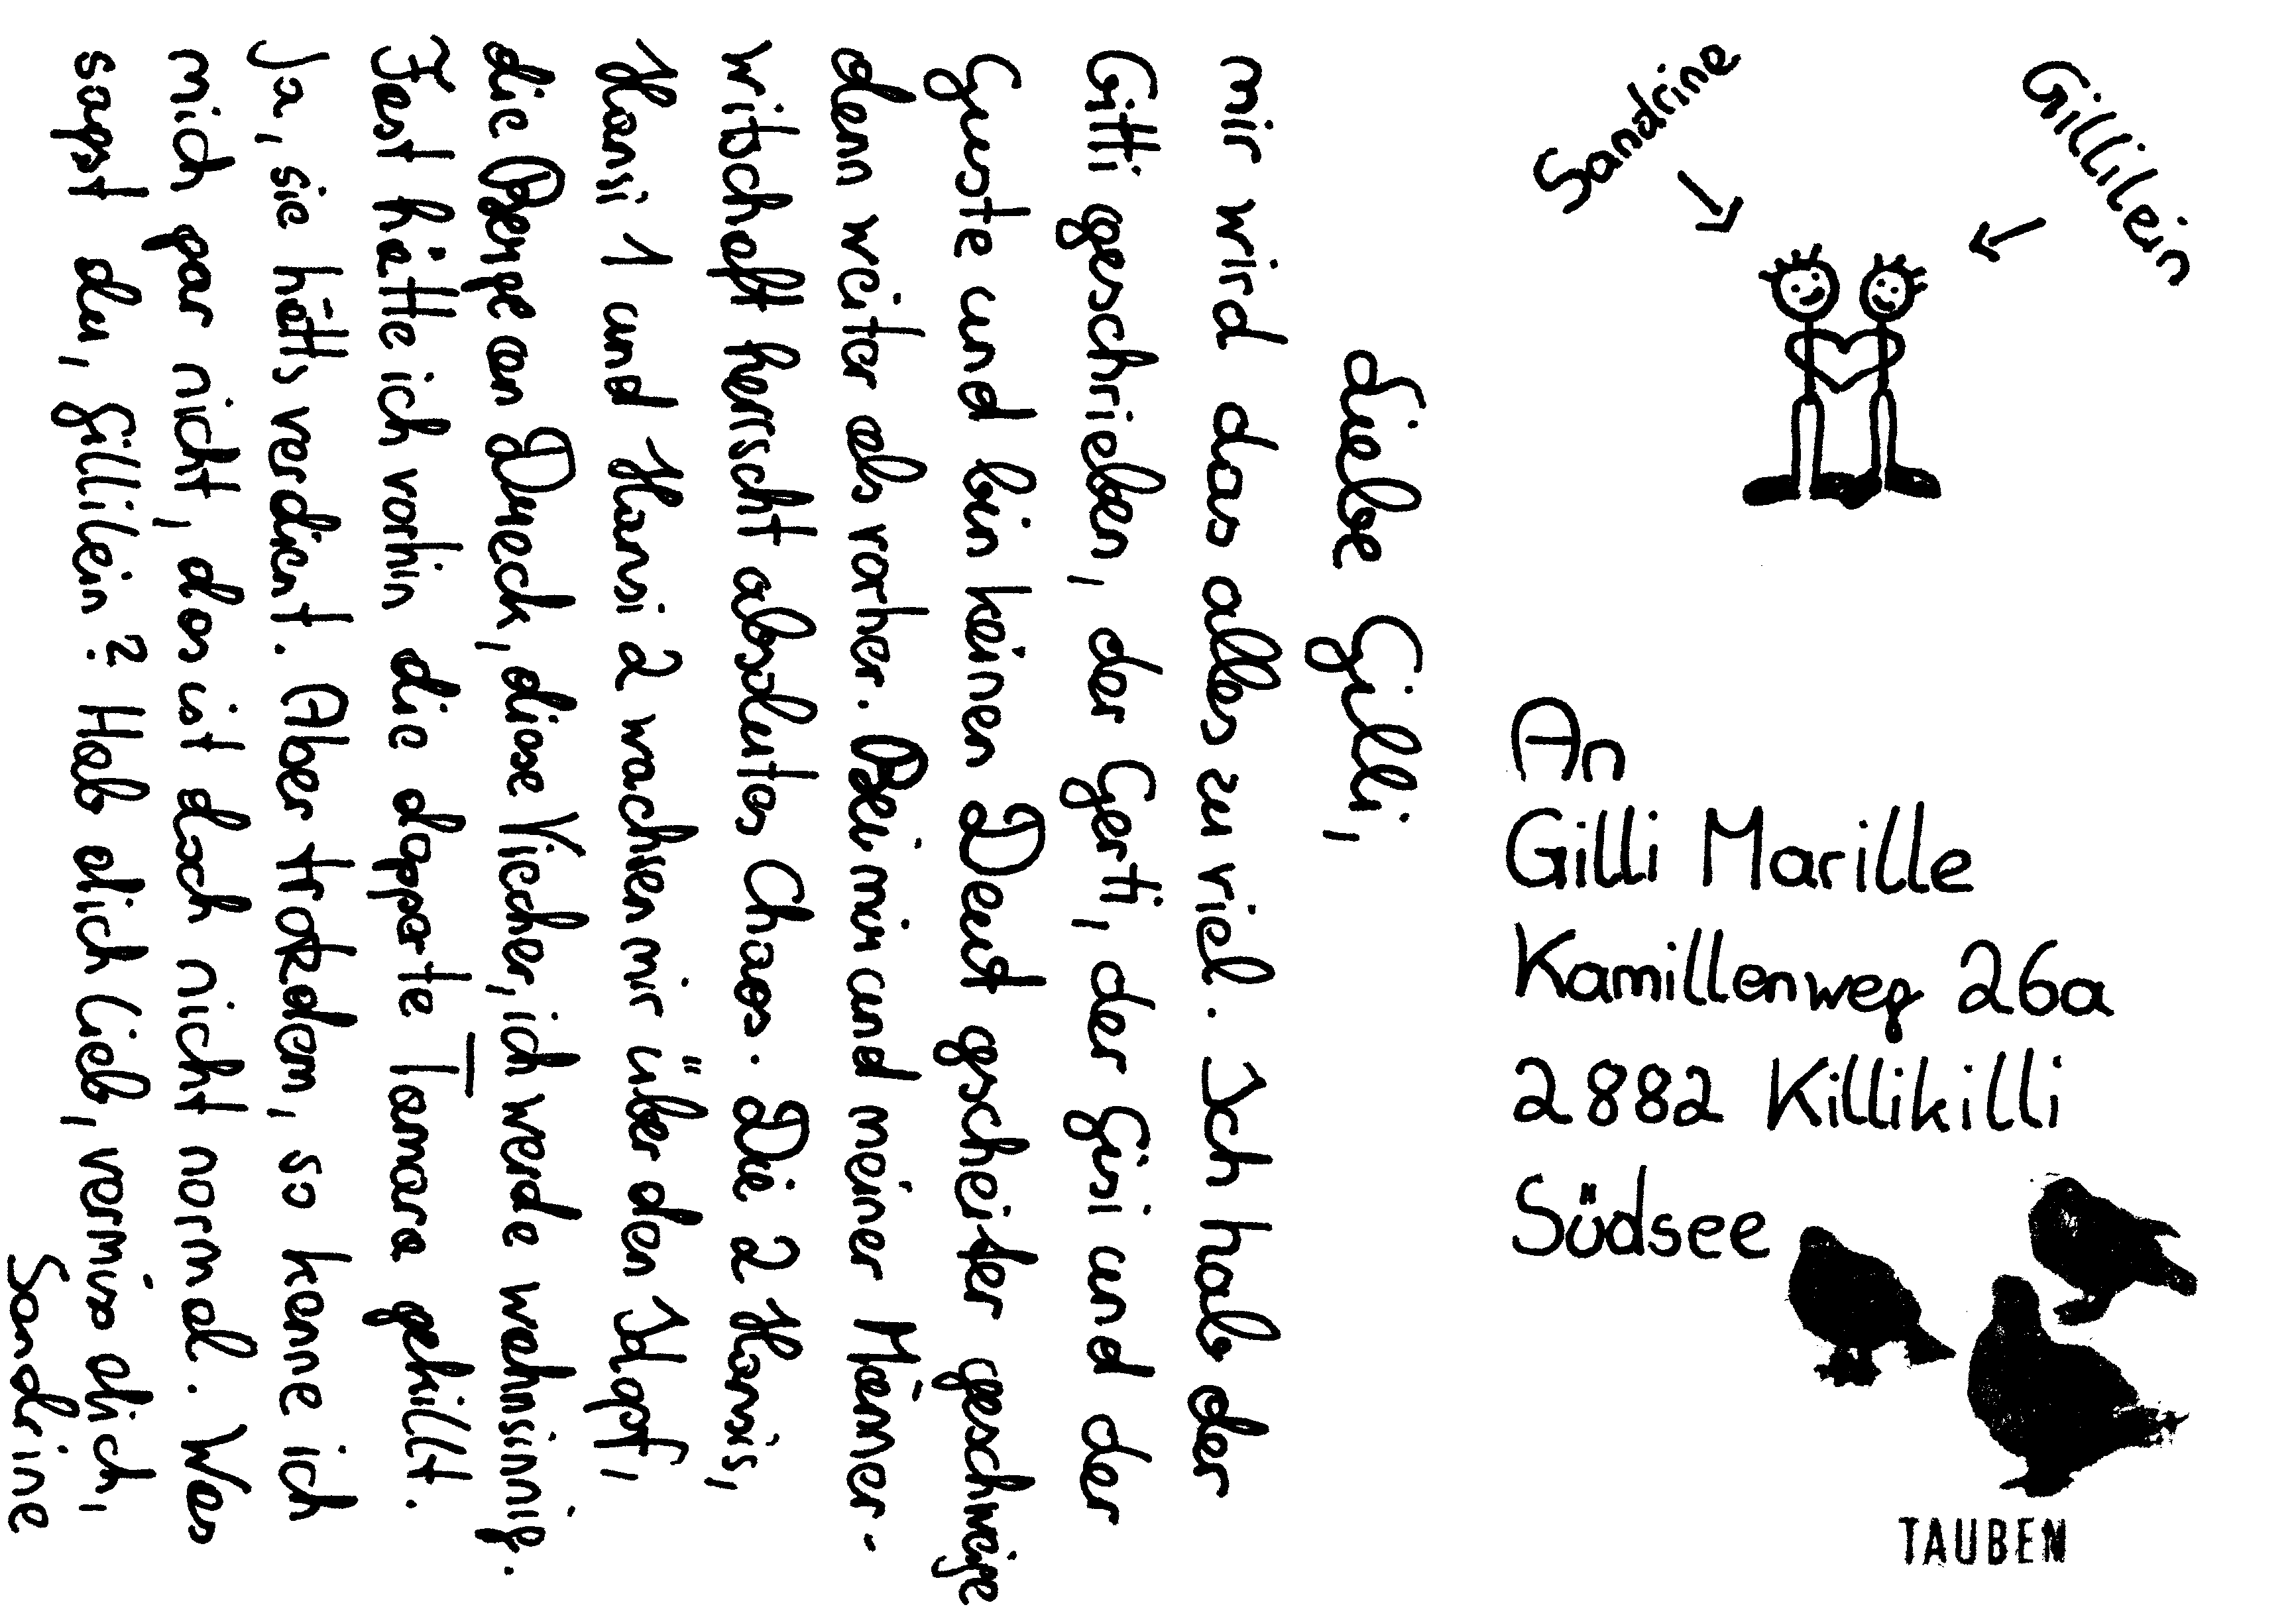 Liebe Gilli,
mir wird das alles zu viel. Ich hab der
Gitti geschrieben, der Gerti, der Gisi und der
Guste und bin keinen Deut gscheiter geschweige
denn weiter als vorher. Bei mir und meiner Männer-
wirtschaft herrscht absolutes Chaos. Die 2 Hansis,
Hansi 1 und Hansi 2 wachsen mir über den Kopf,
die Berge an Dreck, diese Viecher, ich werde wahnsinnig.
Fast hätte ich vorhin die depperte Tamara gekillt.
Ja, sie hätts verdient. Aber trotzdem, so kenne ich
mich gar nicht, das ist doch nicht normal. Was
sagst du, Gillilein? Hab dich lieb, vermiss dich,
Sandrine
Sandrine
Gillilein
An
Gilli Marille
Kamillenweg 26a
2882 Killikilli
Südsee
TAUBEN